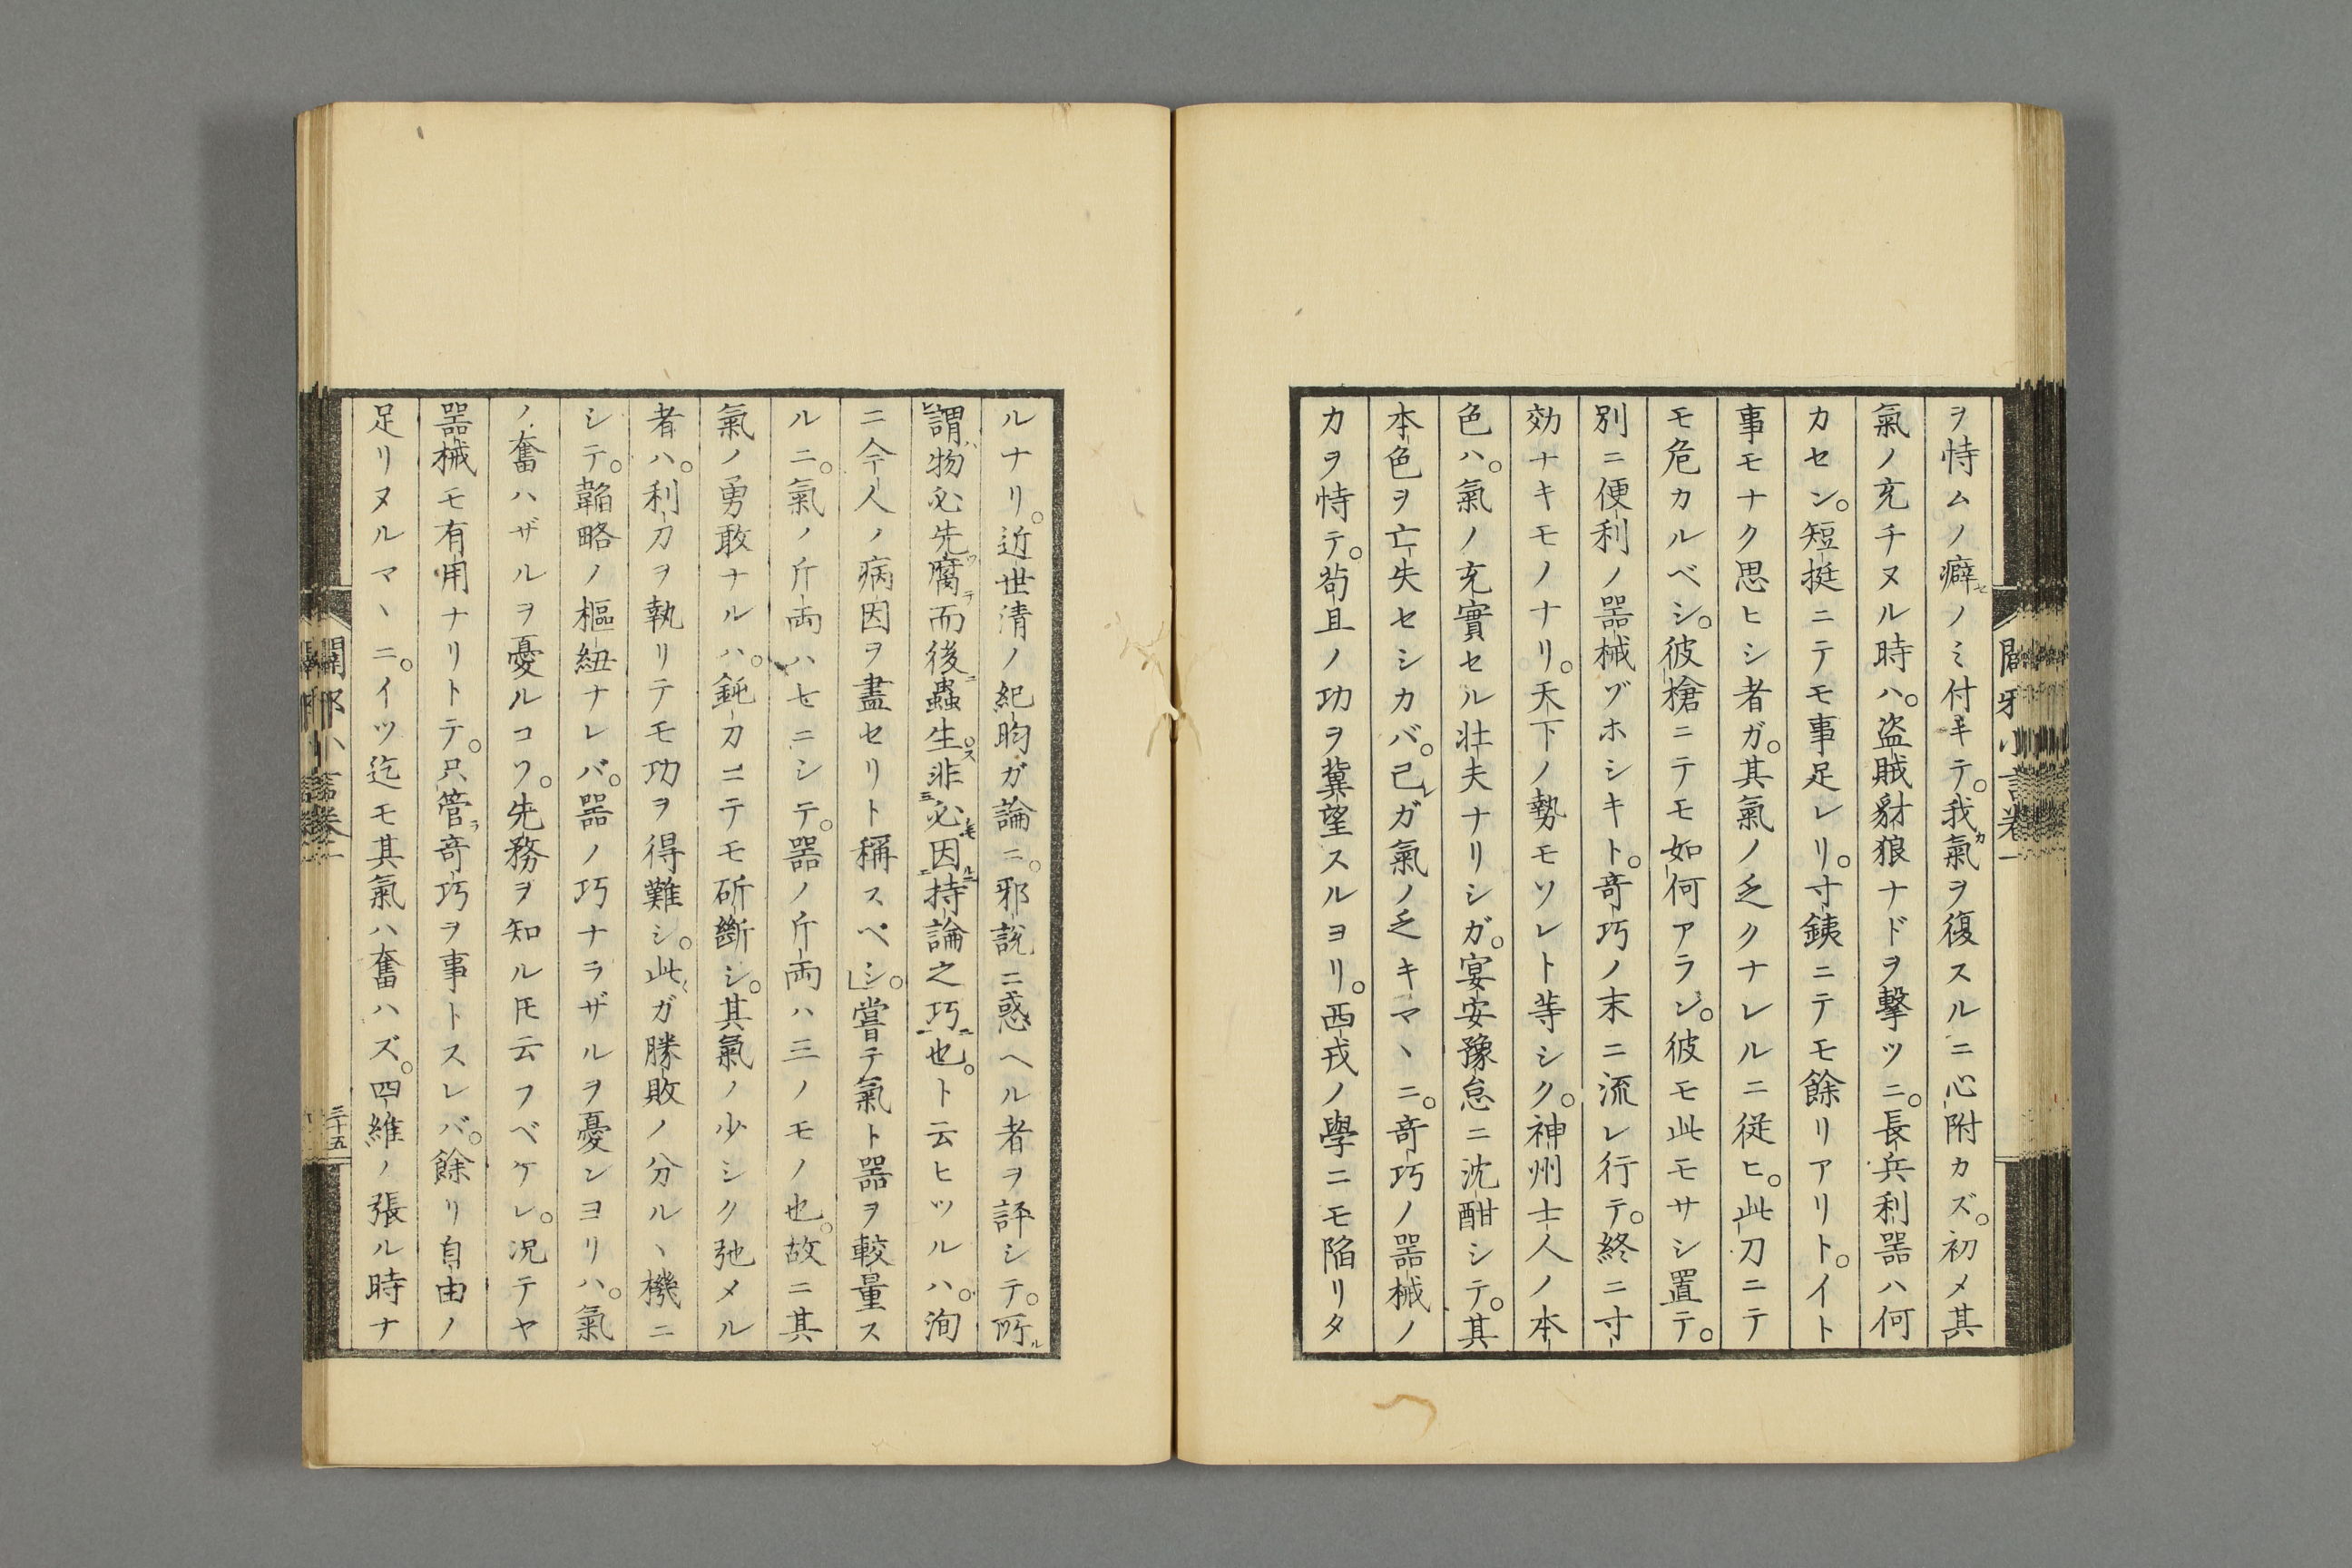 ヲ恃ムノ癖ノミ付キテ。我氣ヲ復スルニ心附カズ。初メ其
氣ノ充チヌル時ハ。盗賊豺狼ナドヲ撃ツニ。長兵利器ハ何
カセン。短挺ニテモ事足レリ。寸銕ニテモ餘リアリト。イト
事モナク思ヒシ者ガ。其氣ノ乏クナレルニ従ヒ。此刀ニテ
モ危カルベシ。彼槍ニテモ如何アラン。彼モ此モサシ置テ。
別ニ便利ノ噐械ヅホシキト。竒巧ノ末ニ流レ行テ。終ニ寸
効ナキモノナリ。天下ノ勢モソレト等シク。神州士人ノ本
色ハ。氣ノ充實セル壮夫ナリシガ。宴安豫怠ニ沈酣シテ。其
本色ヲ亡失セシカバ。己ガ氣ノ乏キマヽニ。竒巧ノ噐械ノ
カヲ恃テ。苟且ノ功ヲ冀望スルヨリ。西戎ノ學ニモ陥リタ
ルナリ。近世清ノ紀昀ガ論ニ。邪説ニ惑ヘル者ヲ評シテ。所
謂物必先腐而後蟲生。非必因持論之巧也。ト云ヒツルハ。洵
ニ今人ノ病因ヲ盡セリト稱スベシ。嘗テ氣ト噐ヲ較量ス
ルニ。氣ノ斤両ハ七ニシテ。噐ノ斤両ハ三ノモノ也。故ニ其
氣ノ勇敢ナルハ。鈍刀ニテモ斫斷シ。其氣ノ少シク弛メル
者ハ。利刀ヲ執リテモ功ヲ得難シ。此ガ勝敗ノ分ルヽ機ニ
シテ。韜略ノ樞紐ナレバ。噐ノ巧ナラザルヲ憂ンヨリハ。氣
ノ奮ハザルヲ憂ルコソ。先務ヲ知ルトモ云フベケレ。况テヤ
噐械モ有用ナリトテ。只管竒巧ヲ事トスレバ。餘リ自由ノ
足リヌルマヽニ。イツ迄モ其氣ハ奮ハズ。四維ノ張ル時ナ
三十五